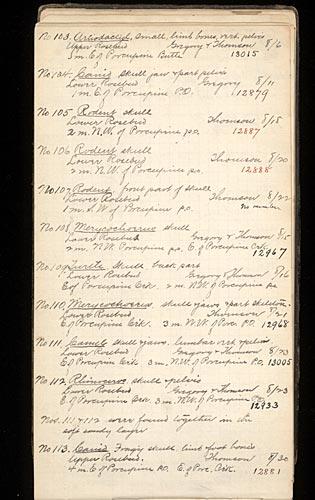 No 103. Artiodactyl, small, limb bones, vert. pelvis
Upper Rosebud Gregory & Thomson 8/6
5 m. E. of Porcupine Butte 13015
No 104. Canis skull jaw & part pelvis
Lower Rosebud Gregory 8/11
1 m. E. of Porcupine P.O. 12879
No 105. Rodent skull
Lower Rosebud Thomson 8/18
2 m. N.W. of Porcupine p.o. 12887
No 106 Rodent skull
Lower Rosebud Thomson 8/20
2 m. N.W. of Porcupine p.o. 12888
No 107 Rodent, front part of skull
Lower Rosebud Thomson 8/22
1 m. S.W. of Porcupine p.o. no number
No 108 Merycochoerus skull
Lower Rosebud Gregory & Thomson 8/15
2 m. N.W. Porcupine p.o. E. of Porcupine Crk. 12967
No 109 Turtle Skull back part
Lower Rosebud Gregory & Thomson 8/16
E of Porcupine Crk. 2 m. N.W. of Porcupine po
No 110, Merycochoerus skull jaws & part skeleton.
Lower Rosebud Thomson 8/21
E. of Porcupine Crk. 3 m. N.W. of Porc. P.O. 12968
No 111. Camel skull jaws. lumbar vert. pelvis
Lower Rosebud Gregory & Thomson 8/23
E of Porcupine Crk. 3 m. N.W. of Porcupine P.O. 13005
No 112, Rhinoceros skull & pelvis
Lower Rosebud Gregory & Thomson 8/23
E. of Porcupine Crk. 3 m. N.W. of Porcupine P.O.
12933
Nos. 111 & 112 were found together in the
soft sandy layer
No 113. Canid Frag'y skull, limb & foot bones
Upper Rosebud. Thomson 8/30
4 m. E. of Porcupine P.O. E. of Porc. Crk. 12881